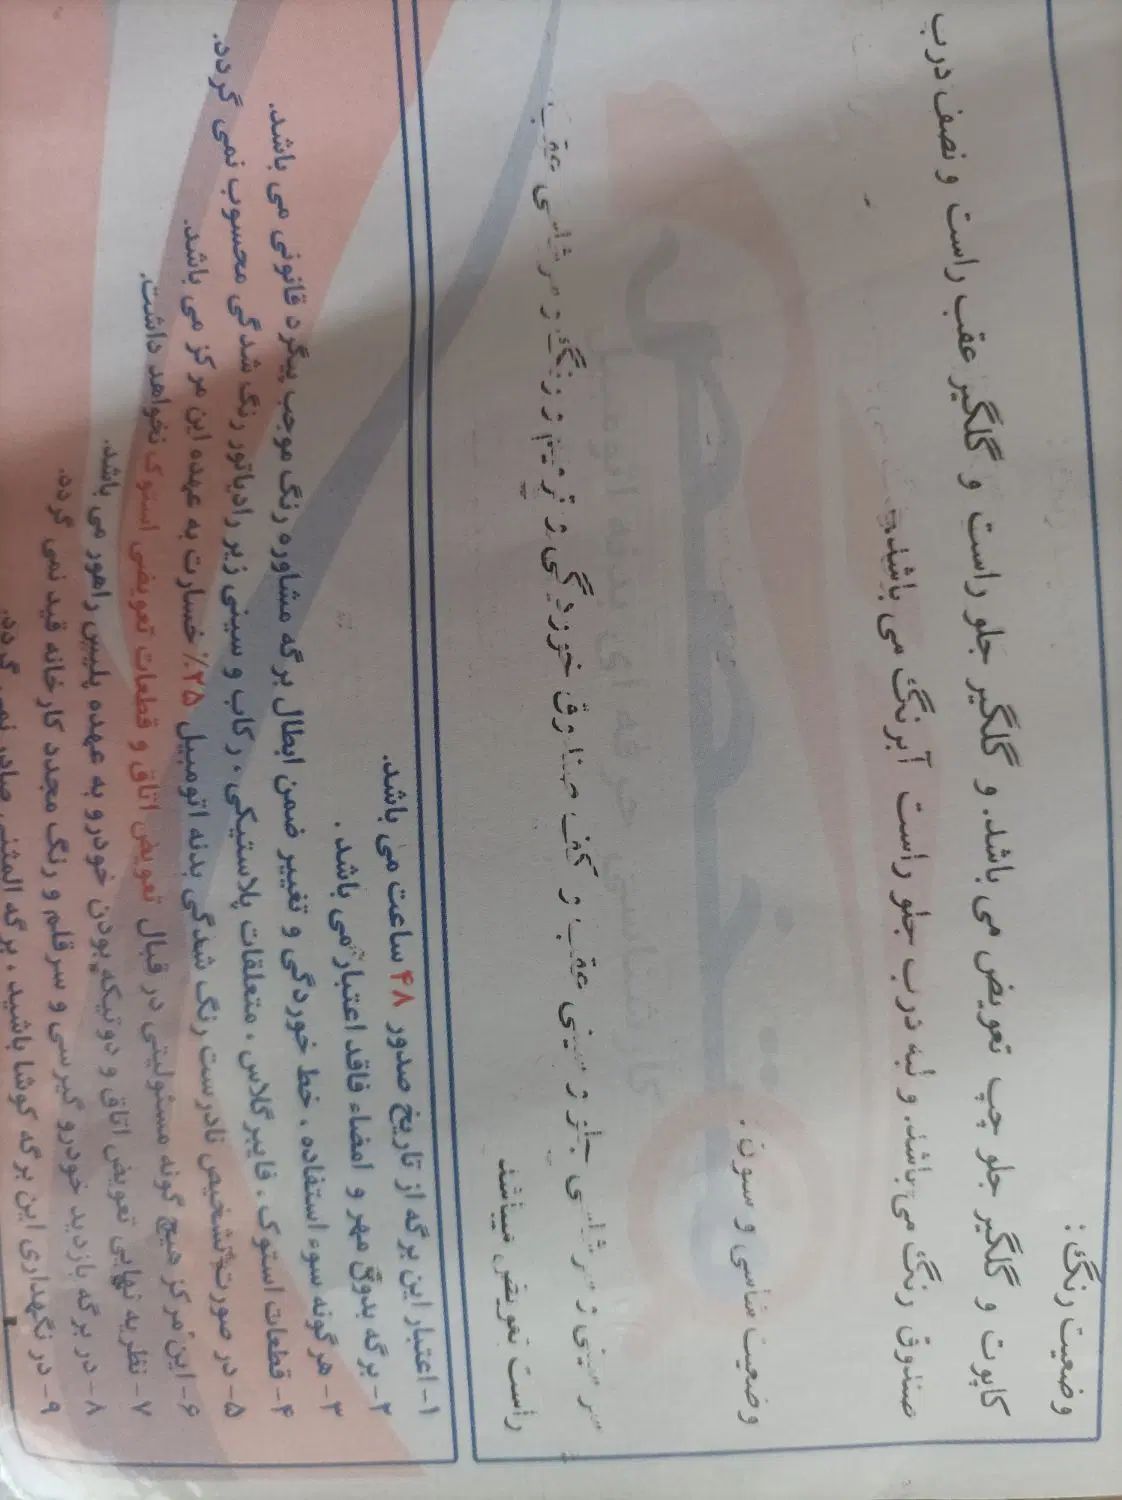 وضعیت رنگ :
کاپوت و گلگیر جلو چپ تعویض می باشد. و گلگیر جلو راست و گلگیر عقب راست و نصف درب
صندوق رنگ می باشد. و لبه درب جلو راست آبرنگ می باشد.
وضعیت شاسی و ستون :
سر سینی و سر شاسی جلو و سینی عقب و کف صندوق خوردگی و ترمیم و رنگ و سر شاسی عقب
راست تعویض میباشد
۱- اعتبار این برگه از تاریخ صدور ۴۸ ساعت می باشد.
۲- برگه بدون مهر و امضاء فاقد اعتبار می باشد .
۳- هر گونه سوء استفاده ، خط خوردگی و تغییر ضمن ابطال برگه مشاوره رنگ موجب پیگرد قانونی می باشد.
۴- قطعات استوک ، فایبر گلاس ، متعلقات پلاستیکی ، رکاب و سینی زیر رادیاتور رنگ شدگی محسوب نمی گردد.
۵- در صورت تشخیص نادرست رنگ شدگی بدنه اتومبیل ۲۵٪ خسارت به عهده این مرکز می باشد.
۶- این مرکز هیچ گونه مسئولیتی در قبال تعویض اتاق و قطعات تعویضی استوک نخواهد داشت.
۷- نظریه نهایی تعویض اتاق و دوتیکه بودن خودرو به عهده پلیس راهور می باشد.
۸- در برگه بازدید خودرو گیرسی و سرقلم و رنگ مجدد کارخانه قید نمی گردد.
۹- در نگهداری این برگه کوشا باشید ، برگه المثنی صادر نمی گردد.